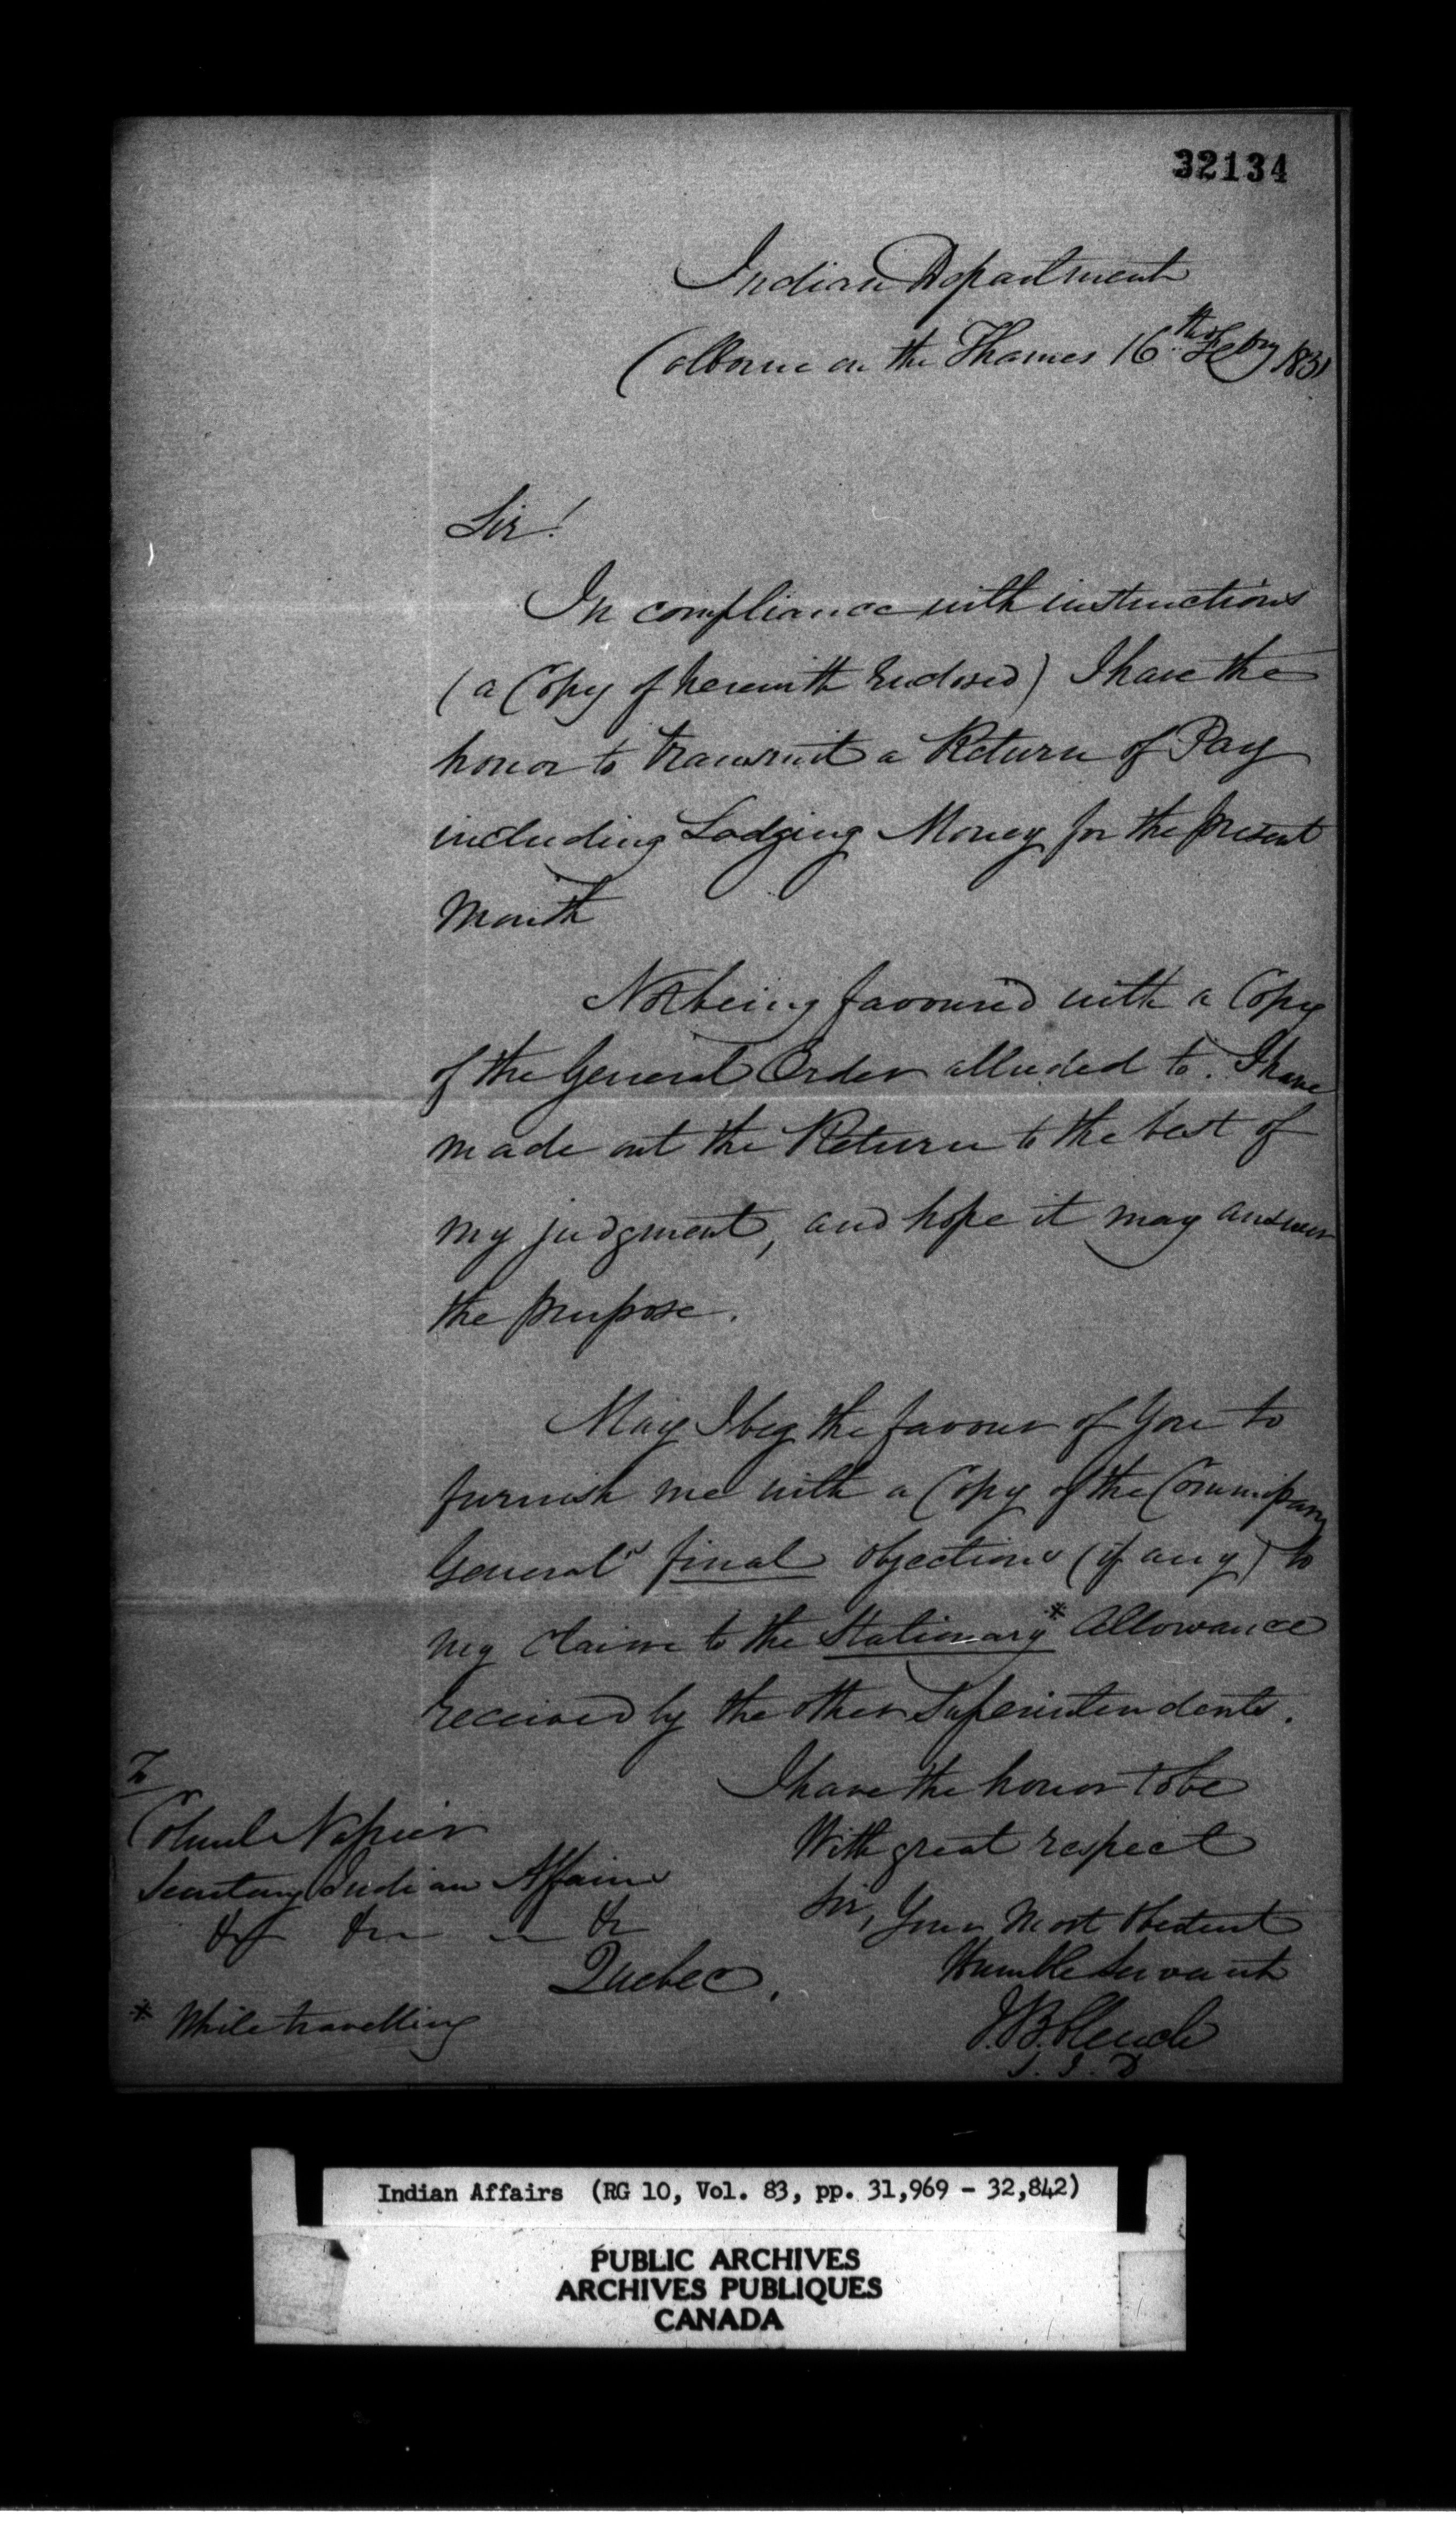 32134
Indian Department
Colborne on the Thames 16th Feby 1831
Sir!
In compliance with instructions
(a Copy of herewith Enclosed) I have the
honor to transmit a Return of Pay
including Lodging Money for the present
Month
Not being favoured with a Copy
of the General Order alluded to. I have
made out the Return to the best of
my judgment, and hope it may answer
the purpose.
May I beg the favour of You to
furnish me with a Copy of the Commissary
General's final objections (if any) to
my Claim to the Stationary* Allowance
received by the other Superintendents.
I have the honor to be
With great respect
Sir, Your Most Obedient
Humble Servant
J.B. Clench
S. I. D
To
Colonel Napier
Secretary Indian Affairs
&c &c &c
Quebec.
* While travelling
Indian Affairs (RG 10, Vol. 83, pp. 31,969 - 32,842)
PUBLIC ARCHIVES
ARCHIVES PUBLIQUES
CANADA